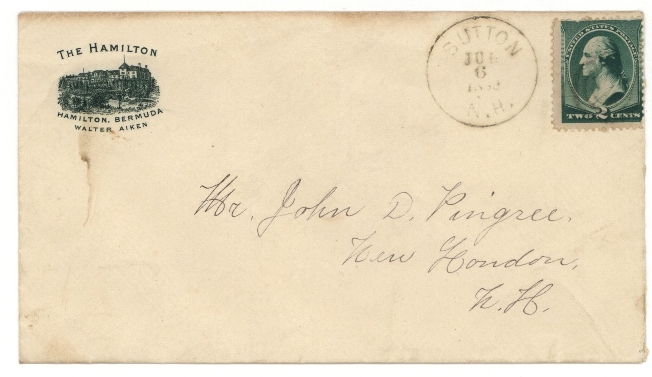 THE HAMILTON
HAMILTON, BERMUDA
WALTER AIKEN
SUTTON
JUL
6
N.H.
UNITED STATES POSTAGE
TWO 2 CENTS
Mr. John D. Pingree.
New London,
N.H.